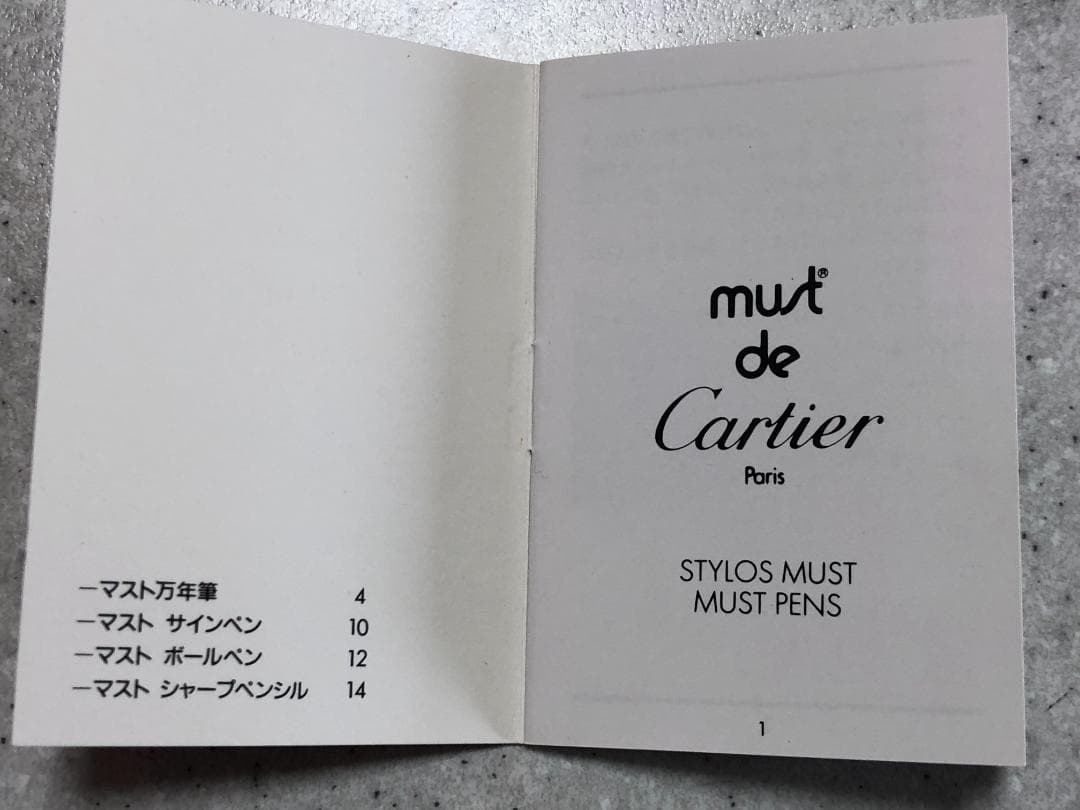 —マスト万年筆 4
—マスト サインペン 10
—マスト ボールペン 12
—マスト シャープペンシル 14
must®
de
Cartier
Paris
STYLOS MUST
MUST PENS
1